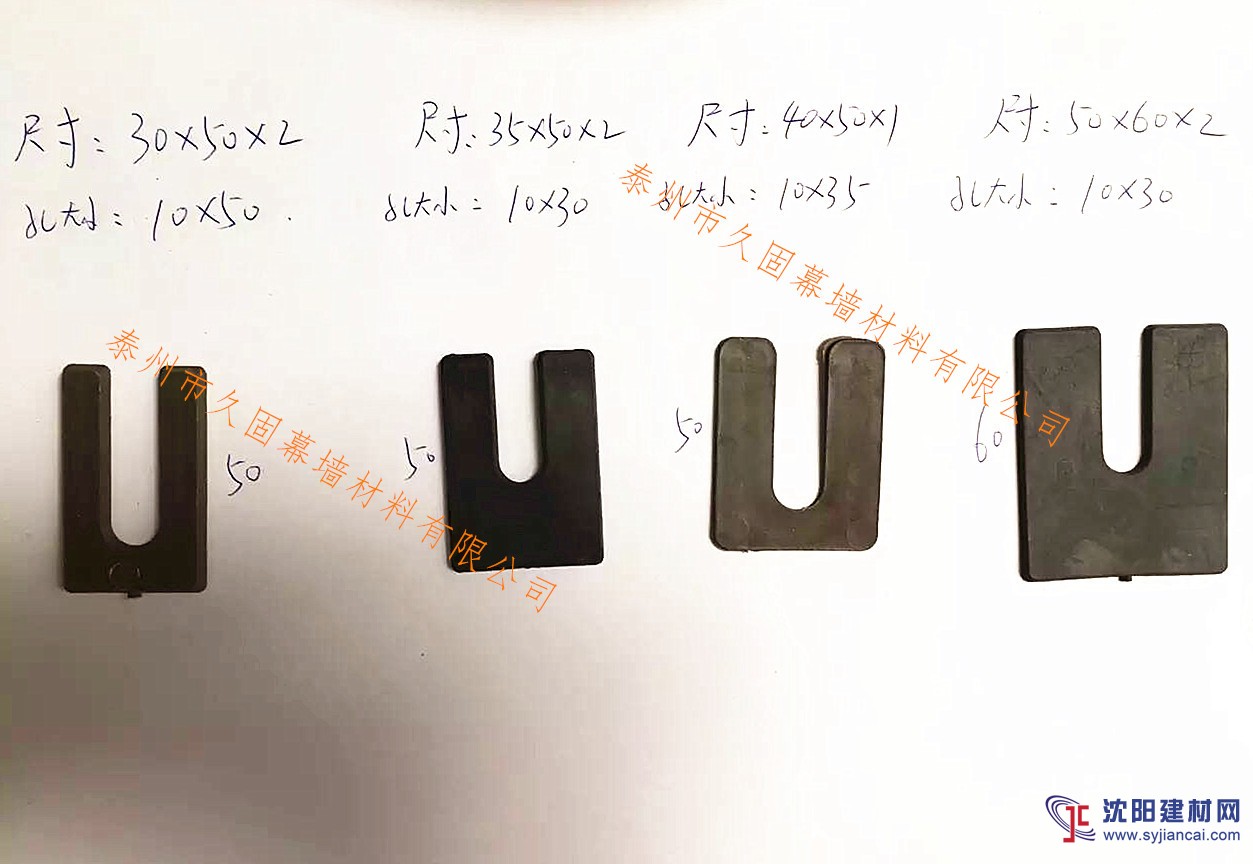 尺寸：30×50×2
孔大小：10×50.
尺寸：35×50×2
孔大小：10×30
尺寸：40×50×1
孔大小：10×35
尺寸：50×60×2
孔大小：10×30
泰州市久固幕墙材料有限公司
泰州市久固幕墙材料有限公司
50
50
50
60
沈阳建材网
www.syjiancai.com